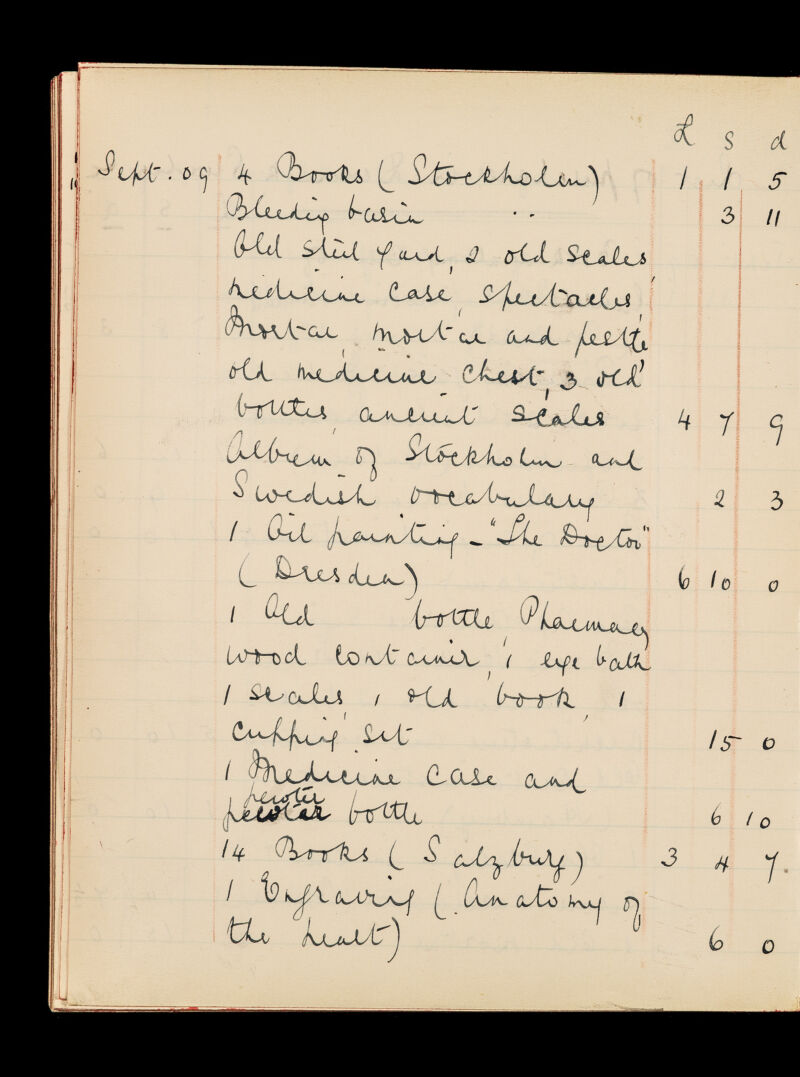 £ s d
Sept. 09 4 Books ( Stockholm) 1 1 5
Bleeding basin .. 3 11
Old Steel Yard, 2 old scales,
medicine case, spectacles,
Mortar, mortar and pestle,
old medicine chest, 3 old
bottles, ancient scales 4 7 9
Album of Stockholm and
Swedish vocabulary 2 3
1 Oil painting - "The Doctor"
( Dresden) 6 10 0
1 Old bottle, Pharmacy
wood container, 1 eye bath
1 scales, 1 old book, 1
cupping set 15 0
1 Medicine case and
pewter
bottle 6 10
14 Books ( Salzburg) 3 4 7.
1 Engraving (. Anatomy of
the heart) 6 0